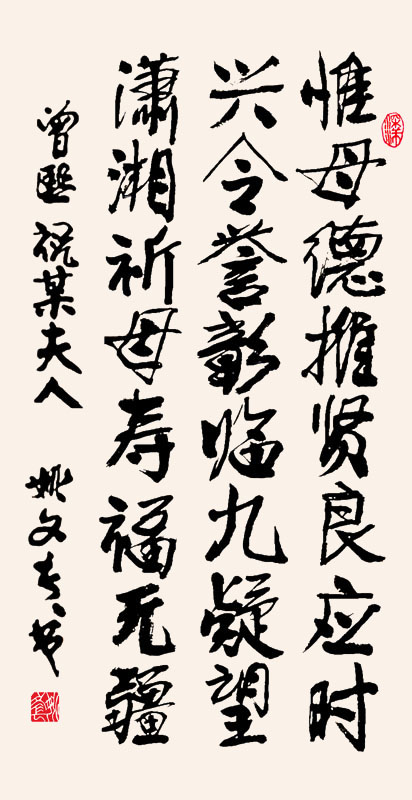 惟母德推贤良应时
兴令誉彰临九疑望
潇湘祈母寿福无疆
曾熙祝某夫人
姚文春书